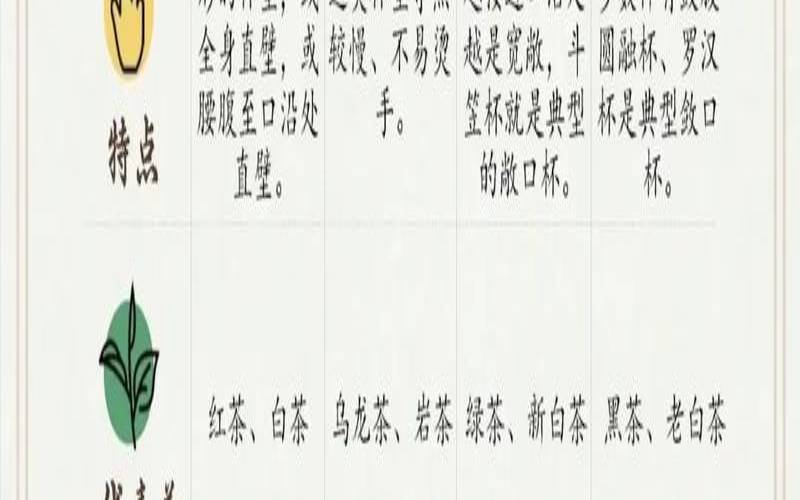 特点
全身直壁，或
腰腹至口沿处
直壁。
较慢、不易烫
手。
越是宽敞，斗
笠杯就是典型
的敞口杯。
圆融杯、罗汉
杯是典型敛口
杯。
红茶、白茶
乌龙茶、岩茶
绿茶、新白茶
黑茶、老白茶